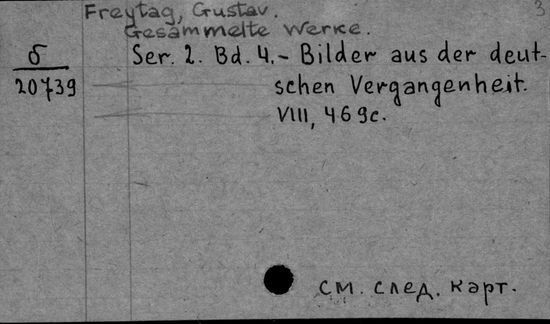 Freytag, Gustav. 3
Gesammelte Werke.
б Ser. 2. Bd. 4.- Bilder aus der deut-
20739 schen Vergangenheit.
VIII, 469c.
см. след. карт.